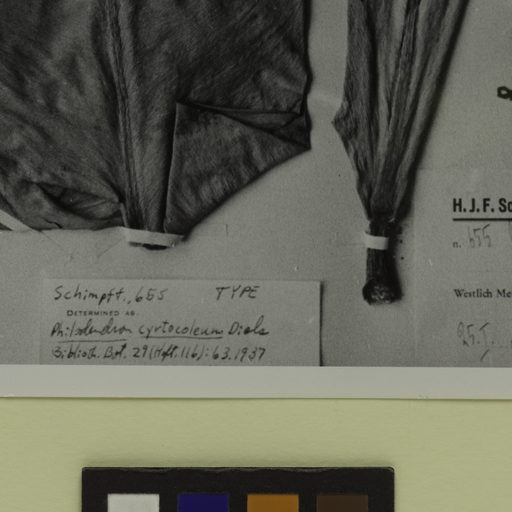 H. J. F. Sc
n. 655
Westlich Me
Schimpff., 655 TYPE
DETERMINED AS.
Philodendron cyrtocoleum Diels
Biblioth. Bot. 29 (Hft. 116): 63. 1937